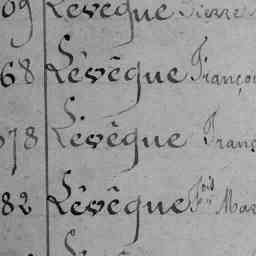 09 Levêque Pierre
68 Levêque Franço
78 Levêque Franç
82 Levêque Fois Mar